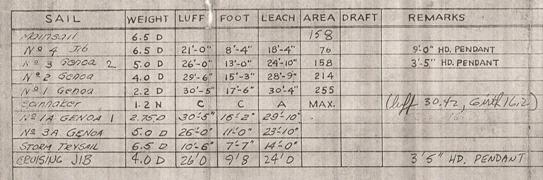 SAIL WEIGHT LUFF FOOT LEACH AREA DRAFT REMARKS
Mainsail 6.5 D 158
Nº 4 Jib 6.5 D 21'-0" 8'-4" 18'-4" 76 9'-0" HD. PENDANT
Nº 3 Genoa 2 5.0 D 26'-0" 13'-0" 24'-10" 158 3'-5" HD. PENDANT
Nº 2 Genoa 4.0 D 29'-6" 15'-3" 28'-9" 214
Nº 1 Genoa 2.2 D 30'-5" 17'-6" 30'-4" 255
Spinnaker 1.2 N C C A MAX. (luff 30.42, Girth 16.2)
Nº 1A GENOA 1 2.75D 30'-5" 16'-2" 29'-10"
Nº 3A GENOA 5.0 D 26'-0" 11'-0" 23'-10"
STORM TRYSAIL 6.5 D 10'-6" 7'-7" 14'-0"
CRUISING JIB 4.0 D 26'0 9'8 24'0 3'5" HD. PENDANT